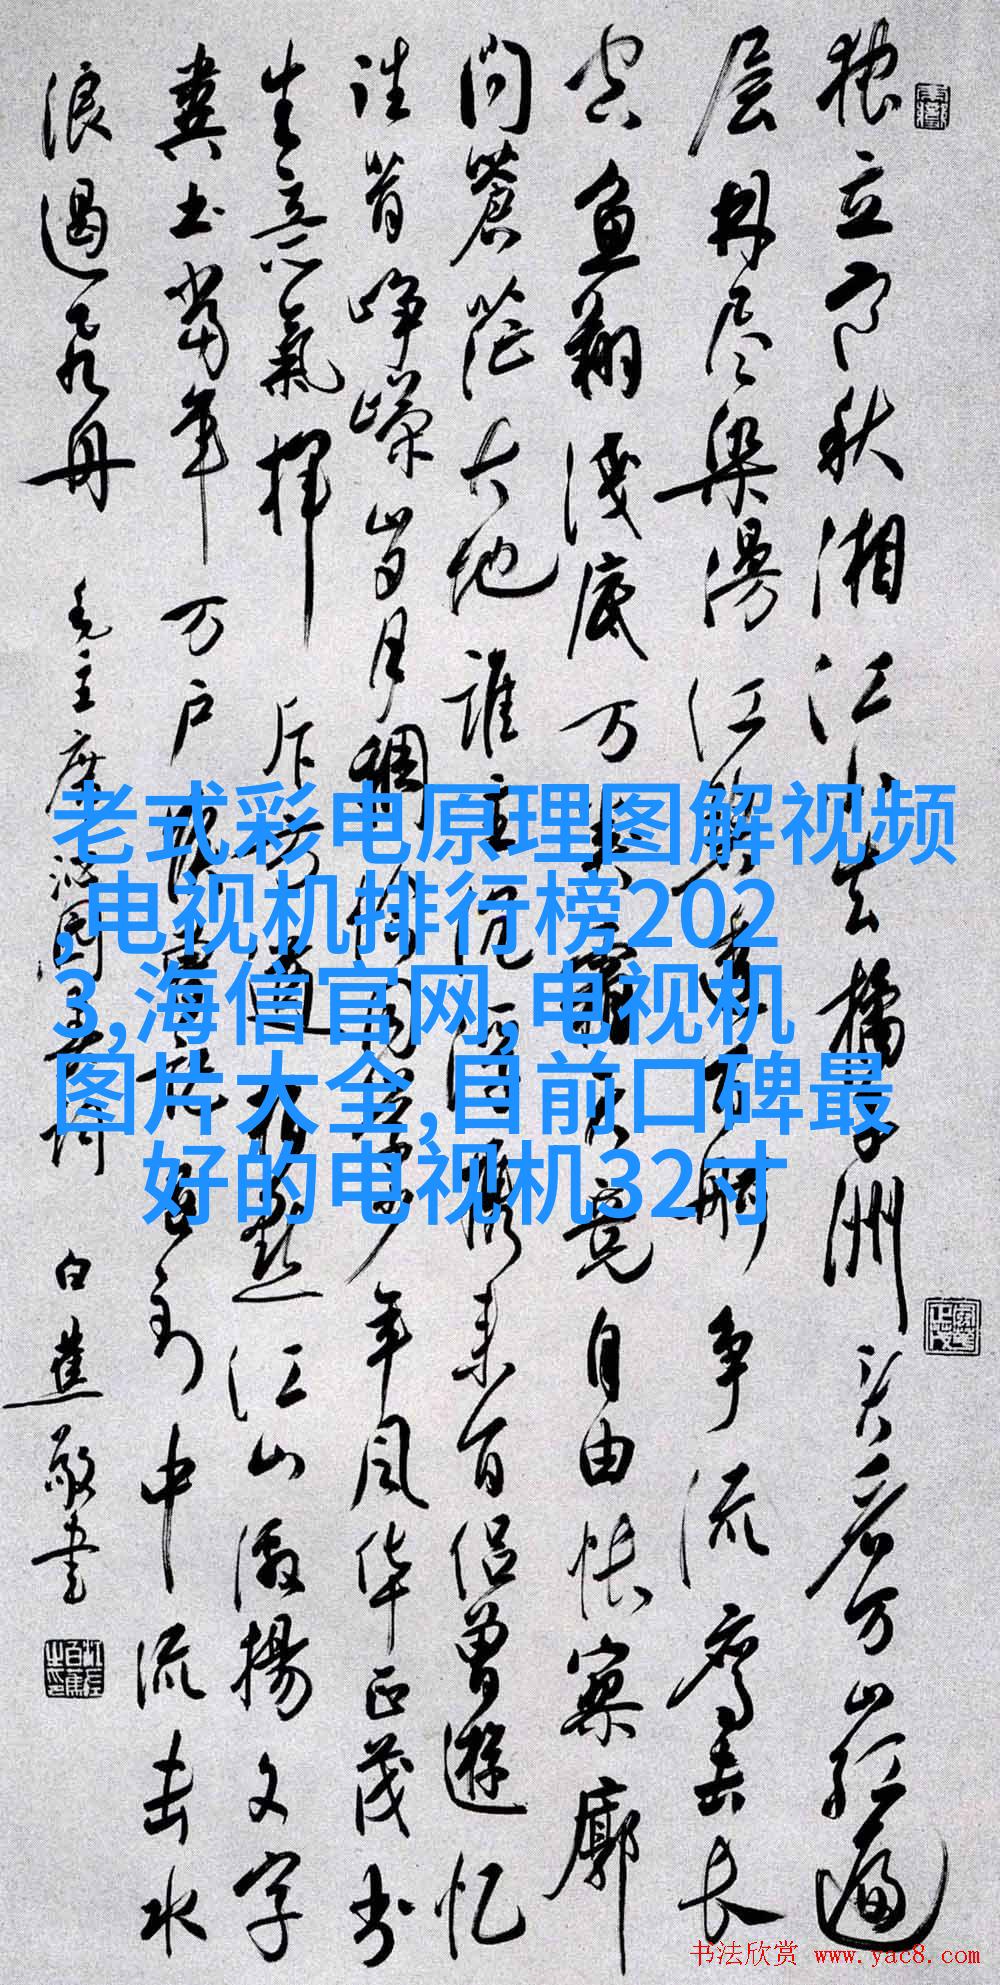 老式彩电原理图解视频
,电视机排行榜202
3,海信官网,电视机
图片大全,目前口碑最
好的电视机32寸
独立寒秋湘江北去橘子洲头看万山红遍
层林尽染漫江碧透百舸争流鹰击长
空鱼翔浅底万类霜天竞自由怅寥廓
问蒼茫大地誰主沉浮携来百侣曾遊忆
往昔峥嵘岁月稠恰同学少年风华正茂书
生意氣挥斥方遒指点江山激揚文字
粪土当年万户侯曾记否到中流击水
浪遏飞舟 毛主席沁园春词 白蕉敬书
书法欣赏 www.yac8.com